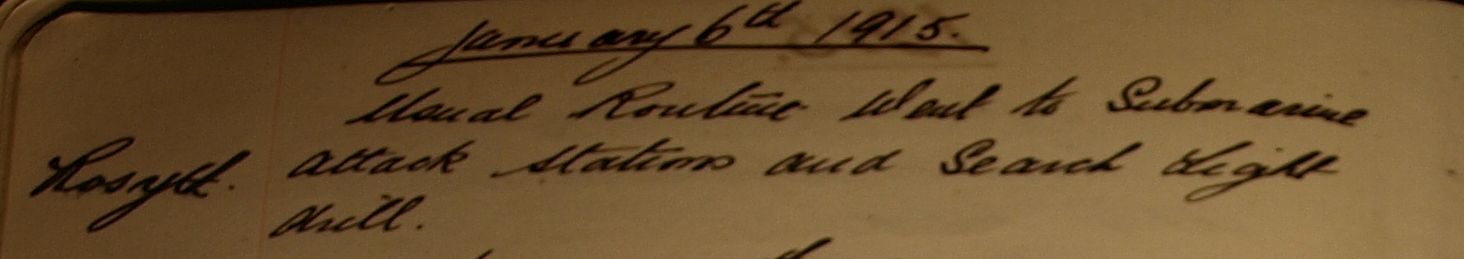 January 6th 1915.
Usual Routine Went to Submarine
Rosyth. attack stations and Search Light
drill.